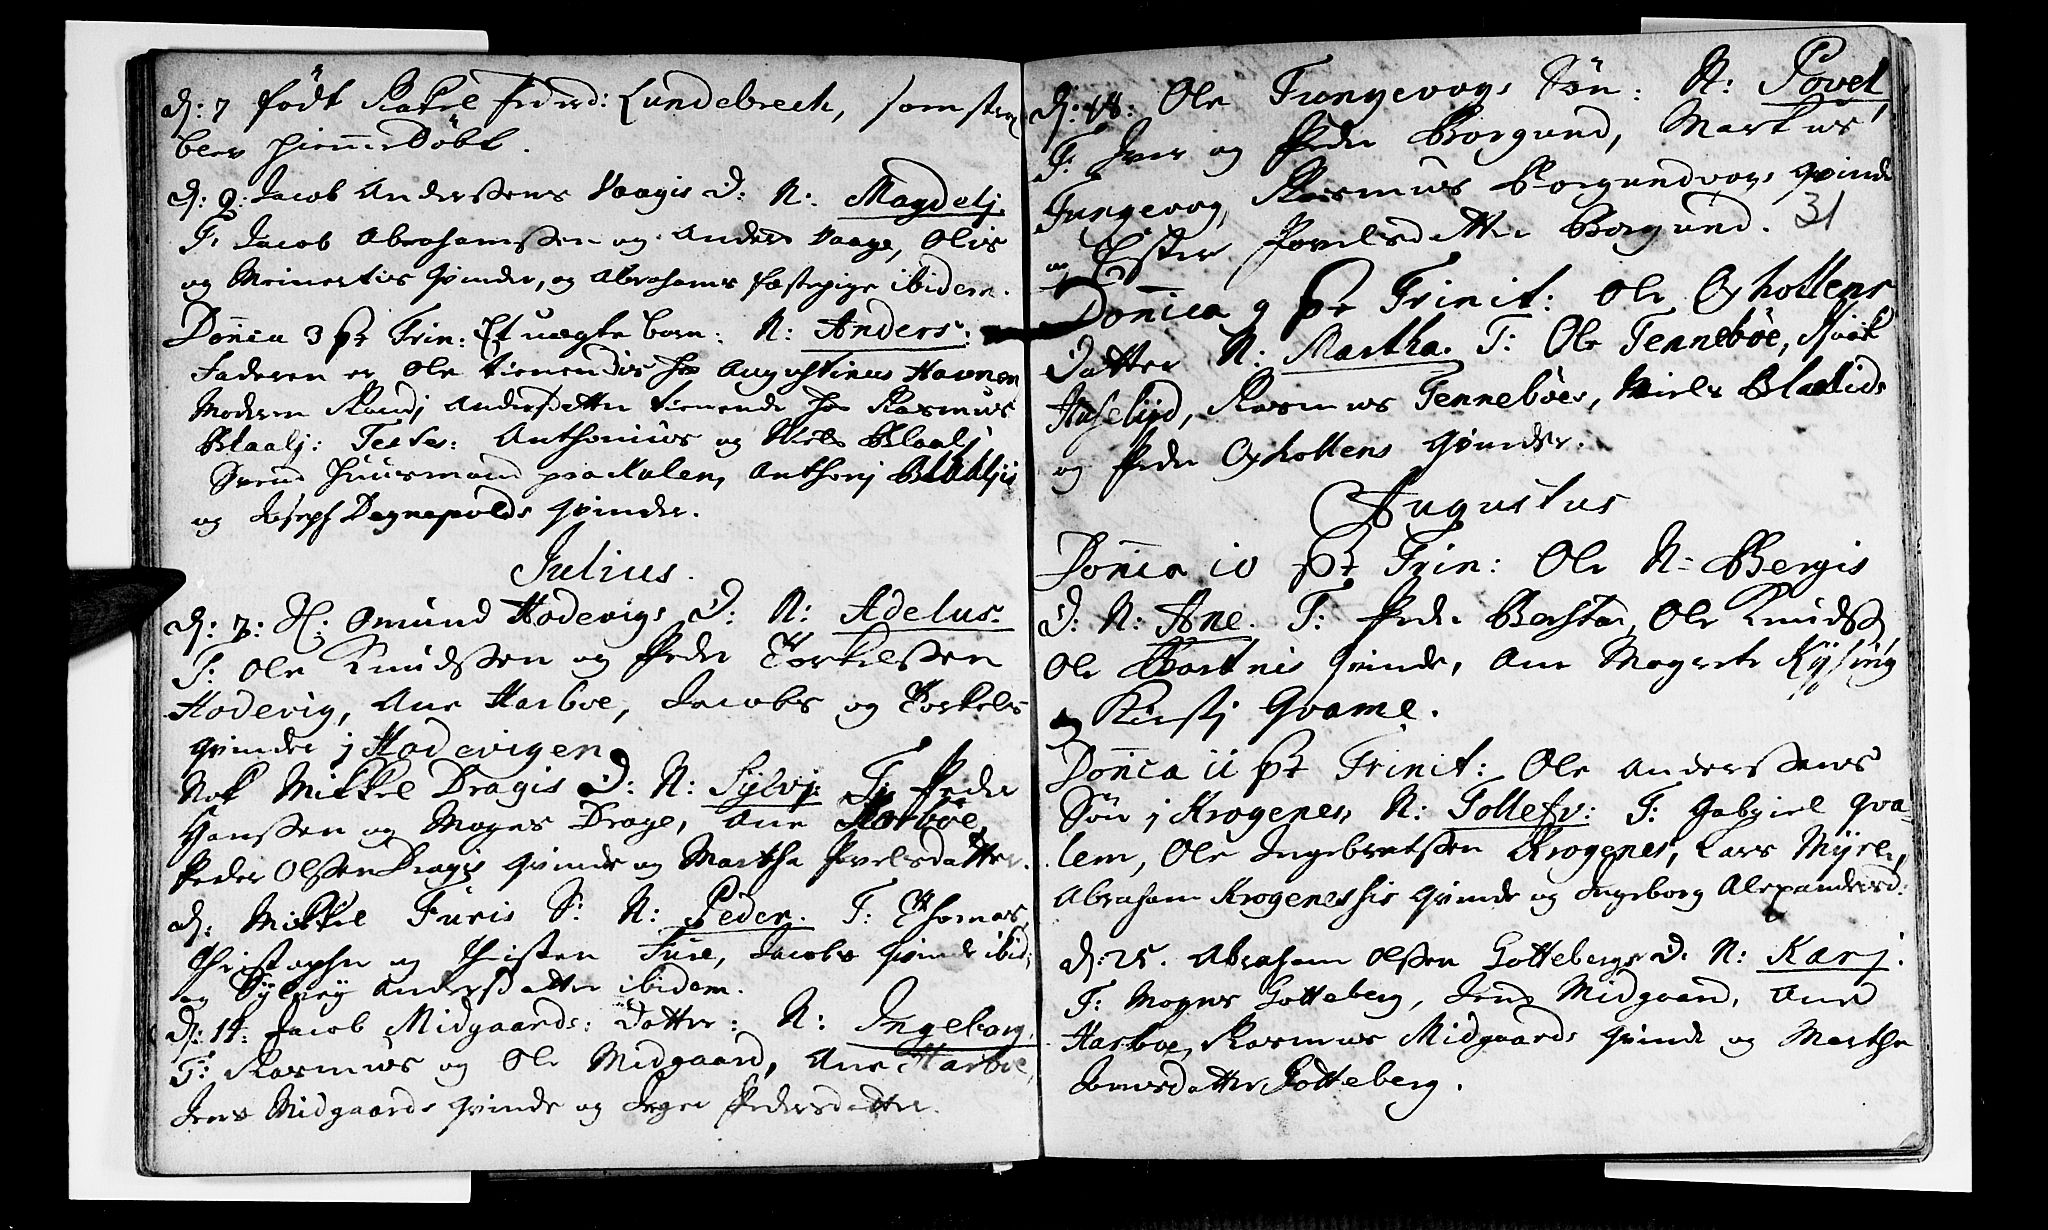 d: 7 født Rakel Friderd: Lundebrech, som strax
blev hiemmeDøbt.
d: 9: Jacob Anderssens Vaagis D: N: Magdelj.
T: Jacob Abrahamssen og Anders Vaage, Olis
og Meinertsis qvinder, og Abrahams fæstepige ibidem.
Dom̄ica 3 pt Trin: Et uægte barn: N: Anders:
Faderen er Ole tienendis hos Augustinus Havnen
Moderen Randj Andersdatter tienende hos Rasmus
Blaalj: Testes: Anthonius og Niels Blaalj
Svend Huusmand paa Kalen, Anthonj Blaaljis
og Joseph Degnepolds qvinder.
Julius.
d: 7: H: Omund Hodevigs D: N: Adelus.
T: Ole Knudssen og Peder Torkelssen
Hodevig, Ane Harboe, Jacobs og Torkels
qvinder j Hodevigen
Nok Mikkel Dragis D: N: Sylvj: T: Peder
Hanssen og Mogns Drage, Ane Harboe
Peder Olssen Dragis qvinde og Martha Povelsdatter.
d: Mikkel Furis S: N: Peder. T: Thomas
Christopher og Christen Fure, Jacobs qvinde ibid:
og Sylvij Andersdatter ibidem.
d: 14: Jacob Midgaards: Datter: N: Ingeborg.
T: Rasmus og Ole Midgaard, Ane Harboe,
Jens Midgaards qvinde og Inger Pedersdatter.
d: 18: Ole Tungevogs Søn: N: Povel,
T: Iver og Peder Borgund, Markus
Tungevog, Rasmus Borgundvogs qvinde
og Ester Povelsdatter Borgund. 31
Dom̄ica 9 pt Trinit: Ole Oxhollens
Datter N: Martha. T: Ole Tennebøe,
Haselijd, Rasmus Tennebøes, Niels Blaalids
og Peder Oxhollens qvinder.
Augustus
Dom̄ica 10 pt Trin: Ole N: Bergis
D: N: Ane. T: Peder Ole Knudss
Ole qvinde, Ane Magrete
og Kirstj Qvame.
Dom̄ica 11 pt Trinit: Ole Anderssens
Søn j Krogenes, N: Tollefv: T: Gabriel Qva-
lem, Ole Ingebretssen Krogenes, Lars Myre,
Abraham Krogenessis qvinde og Ingeborg Alexandersd:
d: 25. Abraham Olssen Gottebergs D: N: Karj.
T: Mogns Gotteberg, Jens Midgaard, Ane
Harboe, Rasmus Midgaards qvinde og Martha
Jonasdatter Gotteberg.